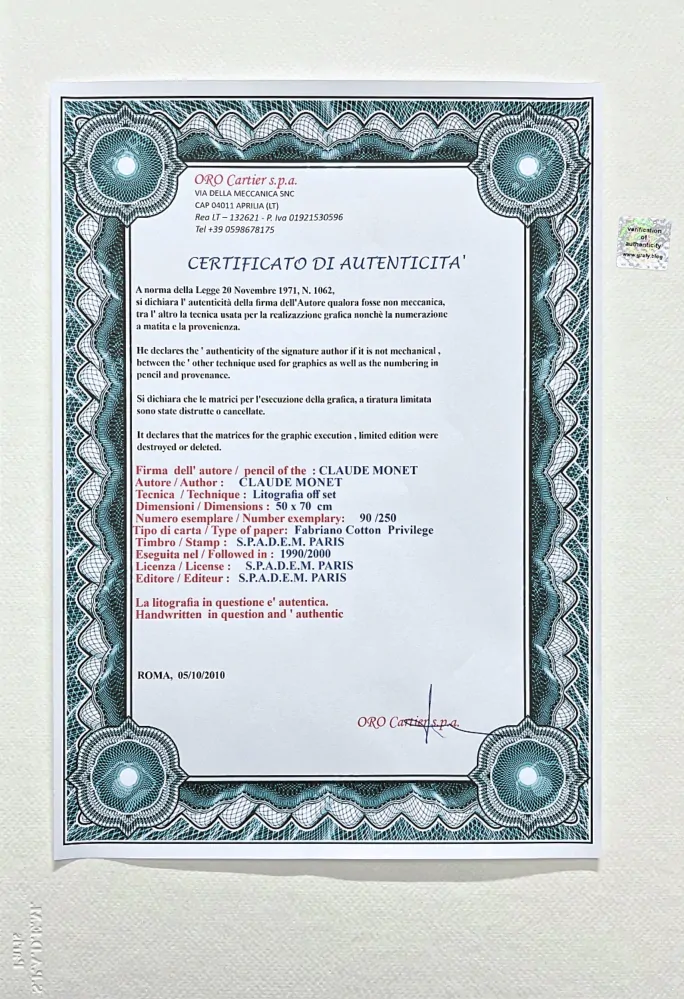 ORO Cartier s.p.a.
VIA DELLA MECCANICA SNC
CAP 04011 APRILIA (LT)
Rea LT – 132621 - P. Iva 01921530596
Tel +39 0598678175
CERTIFICATO DI AUTENTICITA'
A norma della Legge 20 Novembre 1971, N. 1062,
si dichiara l' autenticità della firma dell'Autore qualora fosse non meccanica,
tra l' altro la tecnica usata per la realizazzione grafica nonchè la numerazione
a matita e la provenienza.
He declares the ' authenticity of the signature author if it is not mechanical ,
between the ' other technique used for graphics as well as the numbering in
pencil and provenance.
Si dichiara che le matrici per l'esecuzione della grafica, a tiratura limitata
sono state distrutte o cancellate.
It declares that the matrices for the graphic execution , limited edition were
destroyed or deleted.
Firma dell' autore / pencil of the : CLAUDE MONET
Autore / Author : CLAUDE MONET
Tecnica / Technique : Litografia off set
Dimensioni / Dimensions : 50 x 70 cm
Numero esemplare / Number exemplary: 90 /250
Tipo di carta / Type of paper: Fabriano Cotton Privilege
Timbro / Stamp : S.P.A.D.E.M. PARIS
Eseguita nel / Followed in : 1990/2000
Licenza / License : S.P.A.D.E.M. PARIS
Editore / Editeur : S.P.A.D.E.M. PARIS
La litografia in questione e' autentica.
Handwritten in question and ' authentic
ROMA, 05/10/2010
ORO Cartier s.p.a.
verification
of
authenticity
www.graly.blog